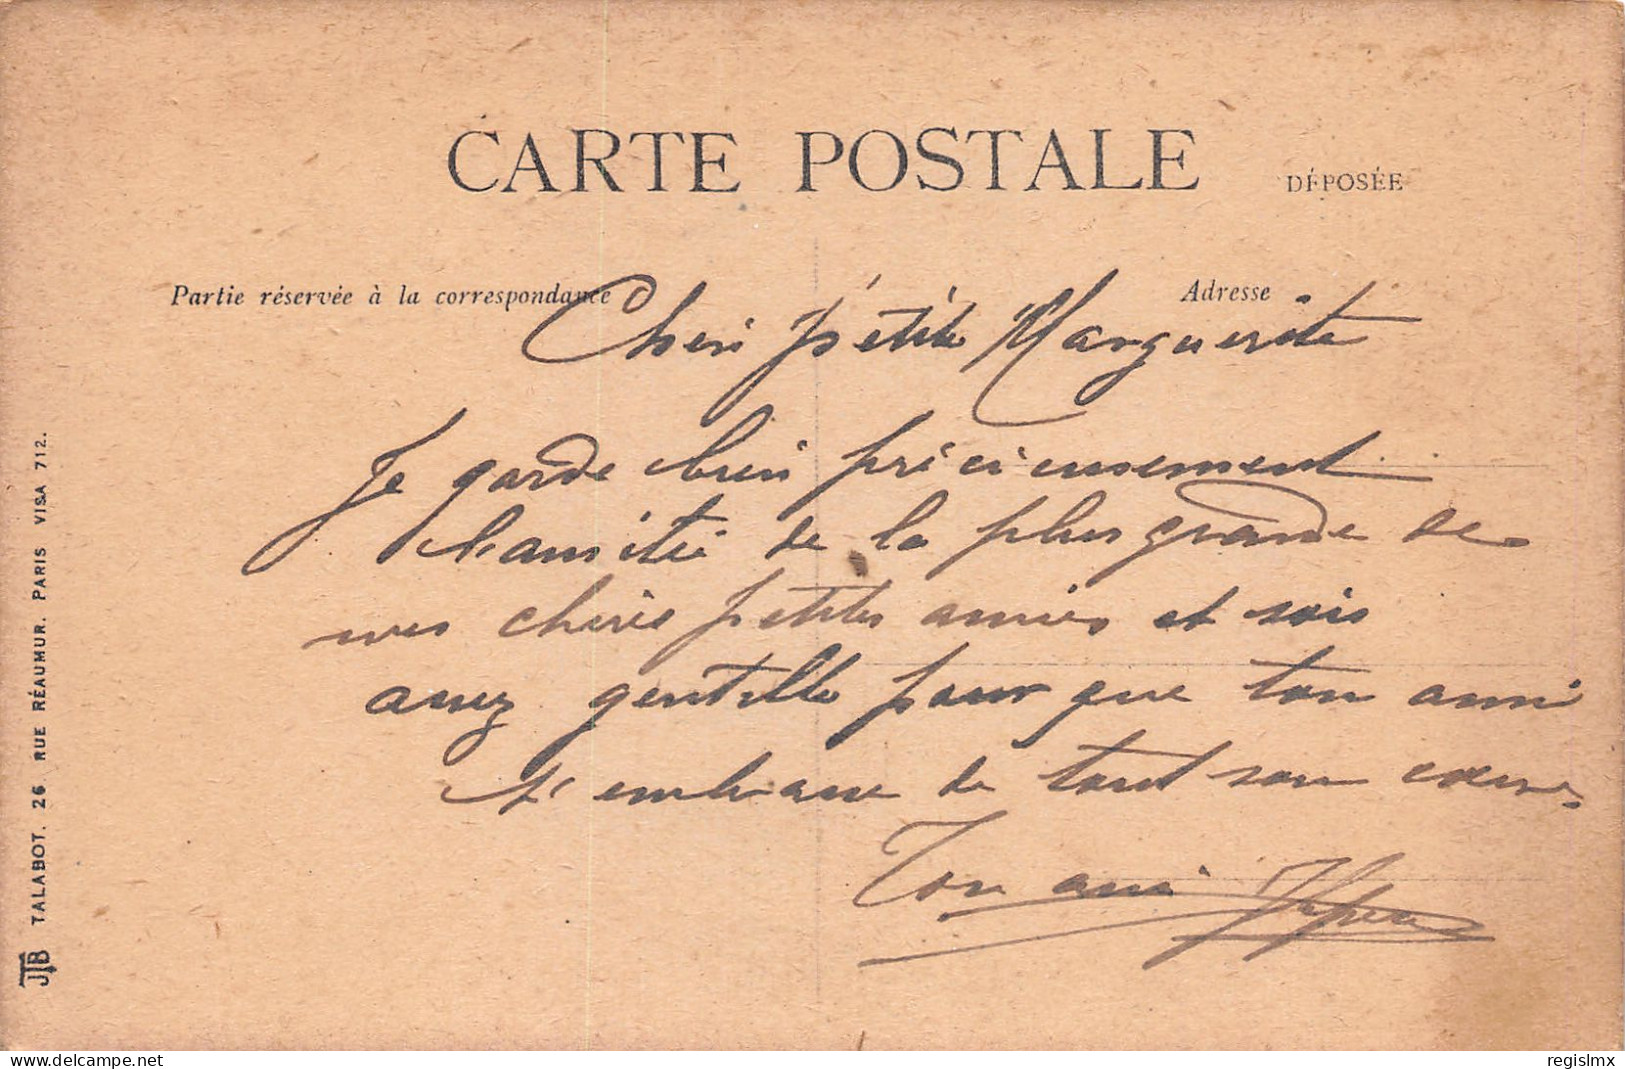 CARTE POSTALE
DÉPOSÉE
Partie réservée à la correspondance
Adresse
Cheri pétite Marguerite
Je garde bien précieusement
l'amitié de la plus grande de
mes chéries petites amies et sois
assez gentille pour que ton ami
t'embrasse de tout son coeur
Ton ami
JTB TALABOT. 26 RUE RÉAUMUR. PARIS VISA 712.
delcampe.net
regislmx